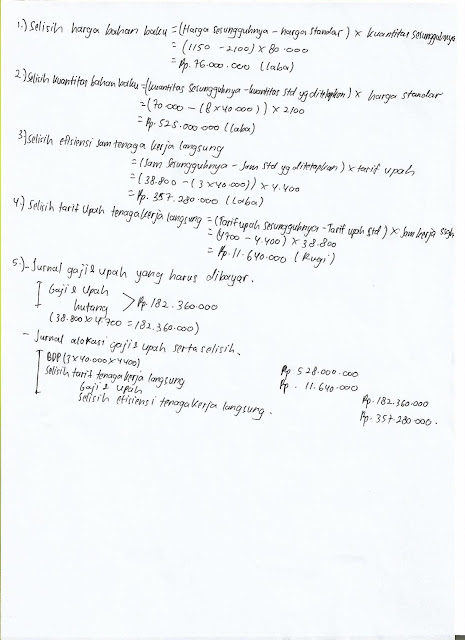 1.) Selisih harga bahan baku = (Harga Sesungguhnya - harga standar) x kuantitas sesungguhnya
= (1150 - 2100) x 80.000
= Rp. 76.000.000 (laba)
2.) Selisih kuantitas bahan baku = (kuantitas sesungguhnya - kuantitas std yg ditetapkan) x harga standar
= (70.000 - (8 x 40.000)) x 2100
= Rp. 525.000.000 (laba)
3.) selisih efisiensi Jam tenaga kerja langsung
= (Jam Sesungguhnya - Jam std yg ditetapkan) x tarif upah
= (38.800 - (3 x 40.000)) x 4.400
= Rp. 357.280.000 (Laba)
4.) Selisih tarif Upah tenaga kerja langsung = (Tarif upah sesungguhnya - Tarif upah std) x Jam kerja
= (4700 - 4.400) x 38.800
= Rp. 11.640.000 (Rugi)
5.) - Jurnal gaji & upah yang harus dibayar.
Gaji & Upah
hutang > Rp. 182.360.000
(38.800 x 4.700 = 182.360.000)
- Jurnal alokasi gaji & upah serta selisih.
BDP (3 x 40.000 x 4400) Rp 528.000.000
Selisih tarif tenaga kerja langsung Rp. 11.640.000
Gaji & upah Rp. 182.360.000
Selisih efisiensi tenaga kerja langsung. Rp. 357.280.000.